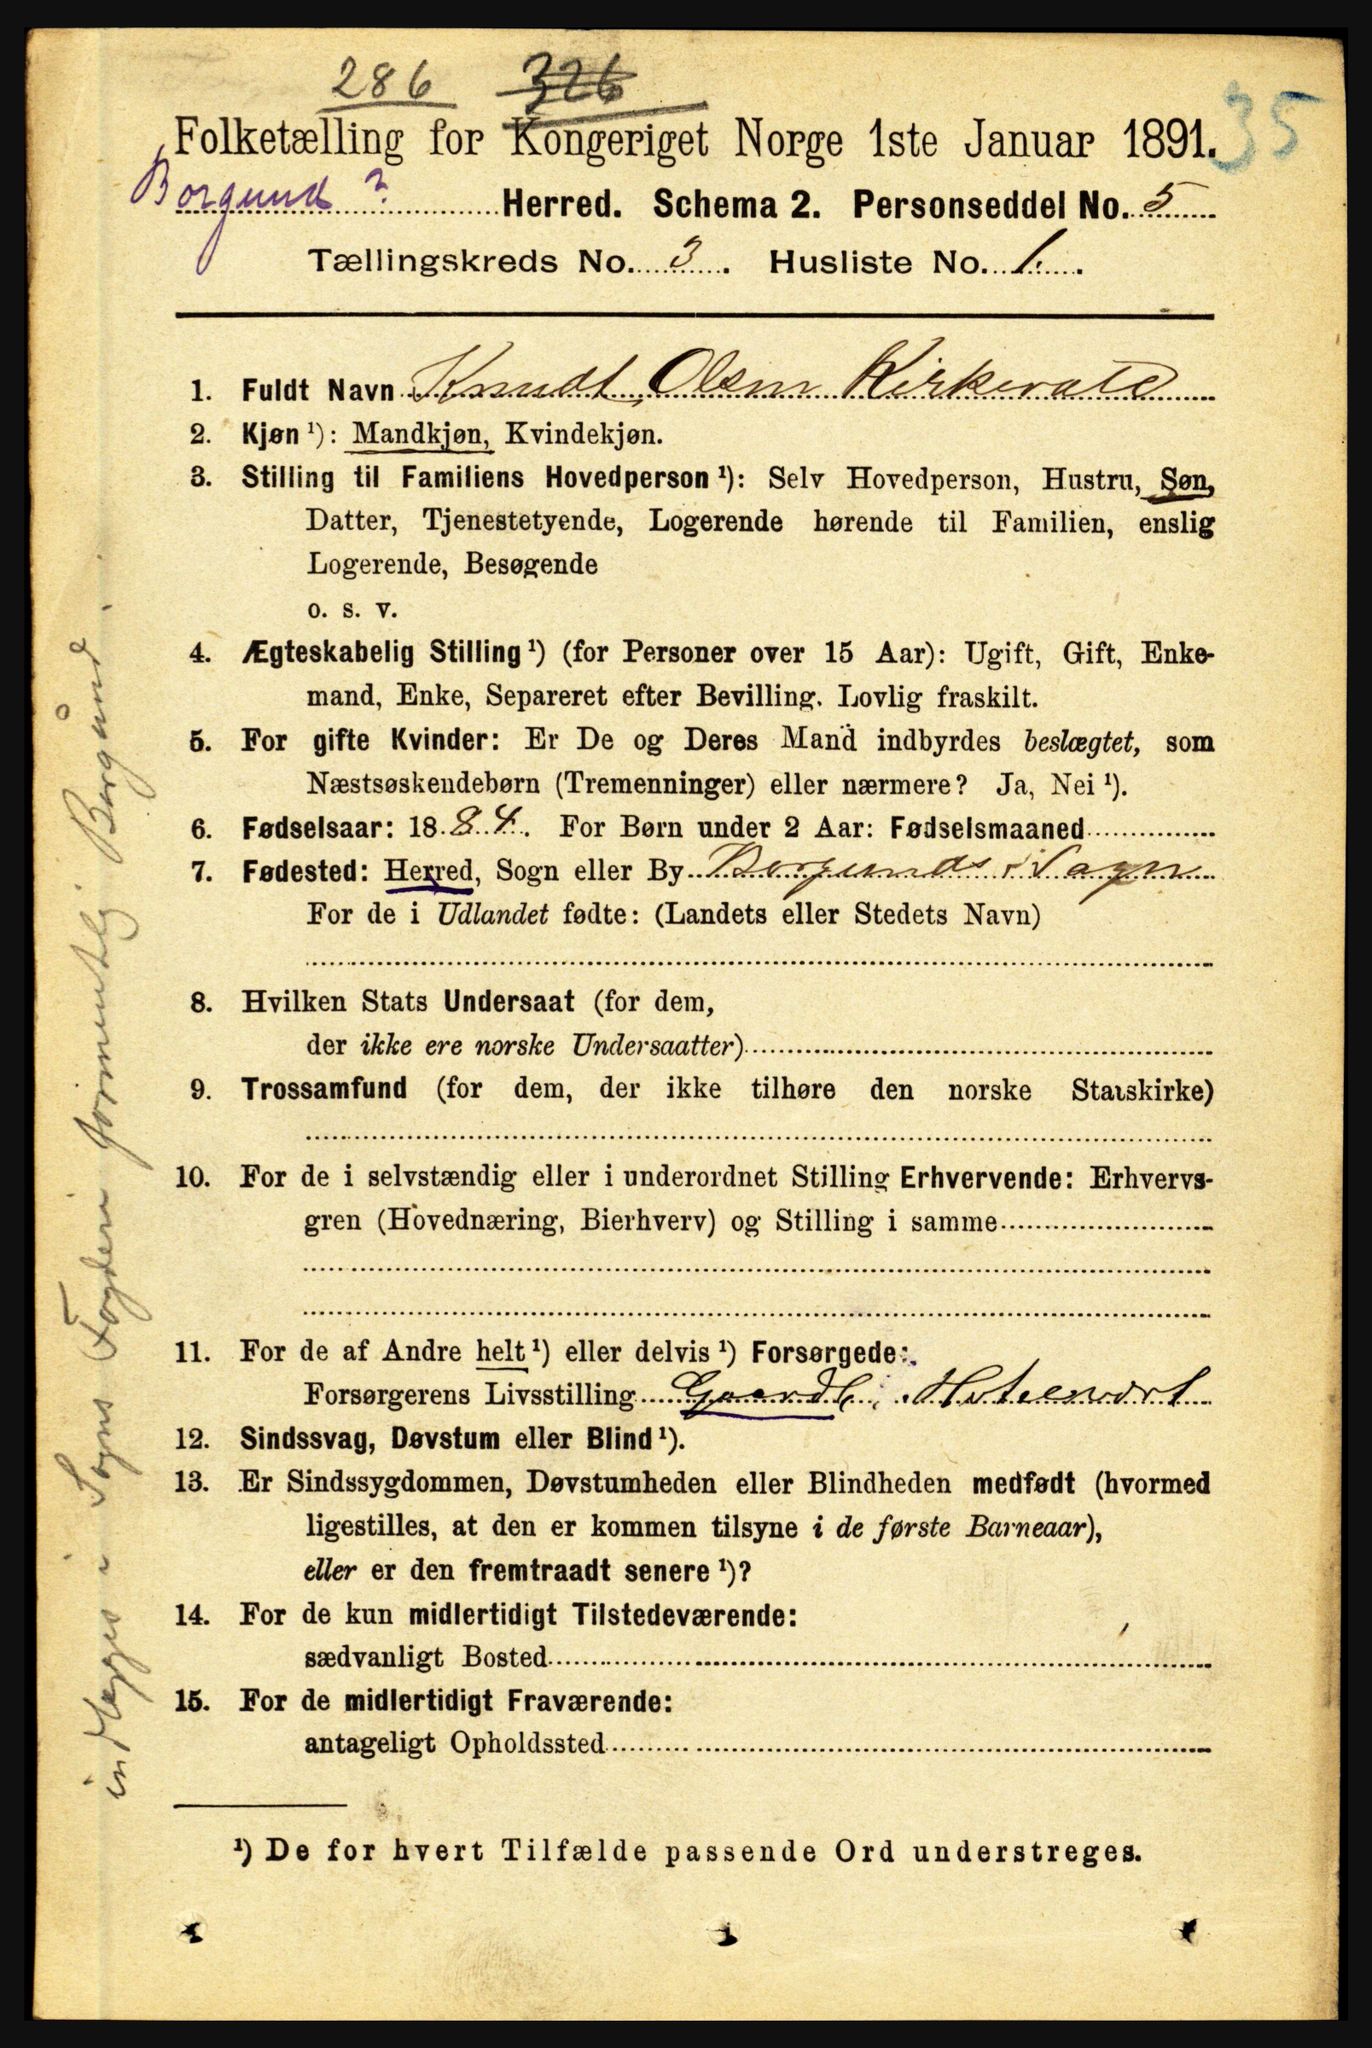 286 326
Folketælling for Kongeriget Norge 1ste Januar 1891. 35
Borgund ? Herred. Schema 2. Personseddel No. 5
Tællingskreds No. 3. Husliste No. 1.
1. Fuldt Navn Knudt Olsen Kirkevold
2. Kjøn ¹): Mandkjøn, Kvindekjøn.
3. Stilling til Familiens Hovedperson ¹): Selv Hovedperson, Hustru, Søn,
Datter, Tjenestetyende, Logerende hørende til Familien, enslig
Logerende, Besøgende
o. s. v.
4. Ægteskabelig Stilling ¹) (for Personer over 15 Aar): Ugift, Gift, Enke-
mand, Enke, Separeret efter Bevilling. Lovlig fraskilt.
5. For gifte Kvinder: Er De og Deres Mand indbyrdes beslægtet, som
Næstsøskendebørn (Tremenninger) eller nærmere? Ja, Nei ¹).
6. Fødselsaar: 1884. For Børn under 2 Aar: Fødselsmaaned
7. Fødested: Herred, Sogn eller By Borgunds Sogn
For de i Udlandet fødte: (Landets eller Stedets Navn)
8. Hvilken Stats Undersaat (for dem,
der ikke ere norske Undersaatter)
9. Trossamfund (for dem, der ikke tilhøre den norske Statskirke)
10. For de i selvstændig eller i underordnet Stilling Erhvervende: Erhvervs-
gren (Hovednæring, Bierhverv) og Stilling i samme
11. For de af Andre helt ¹) eller delvis ¹) Forsørgede:
Forsørgerens Livsstilling Gaardb, Hotelvært
12. Sindssvag, Døvstum eller Blind ¹).
13. Er Sindssygdommen, Døvstumheden eller Blindheden medfødt (hvormed
ligestilles, at den er kommen tilsyne i de første Barneaar),
eller er den fremtraadt senere ¹)?
14. For de kun midlertidigt Tilstedeværende:
sædvanligt Bosted
15. For de midlertidigt Fraværende:
antageligt Opholdssted
¹) De for hvert Tilfælde passende Ord understreges.
indlægges i Sogns Fogderi formentlig Borgund.